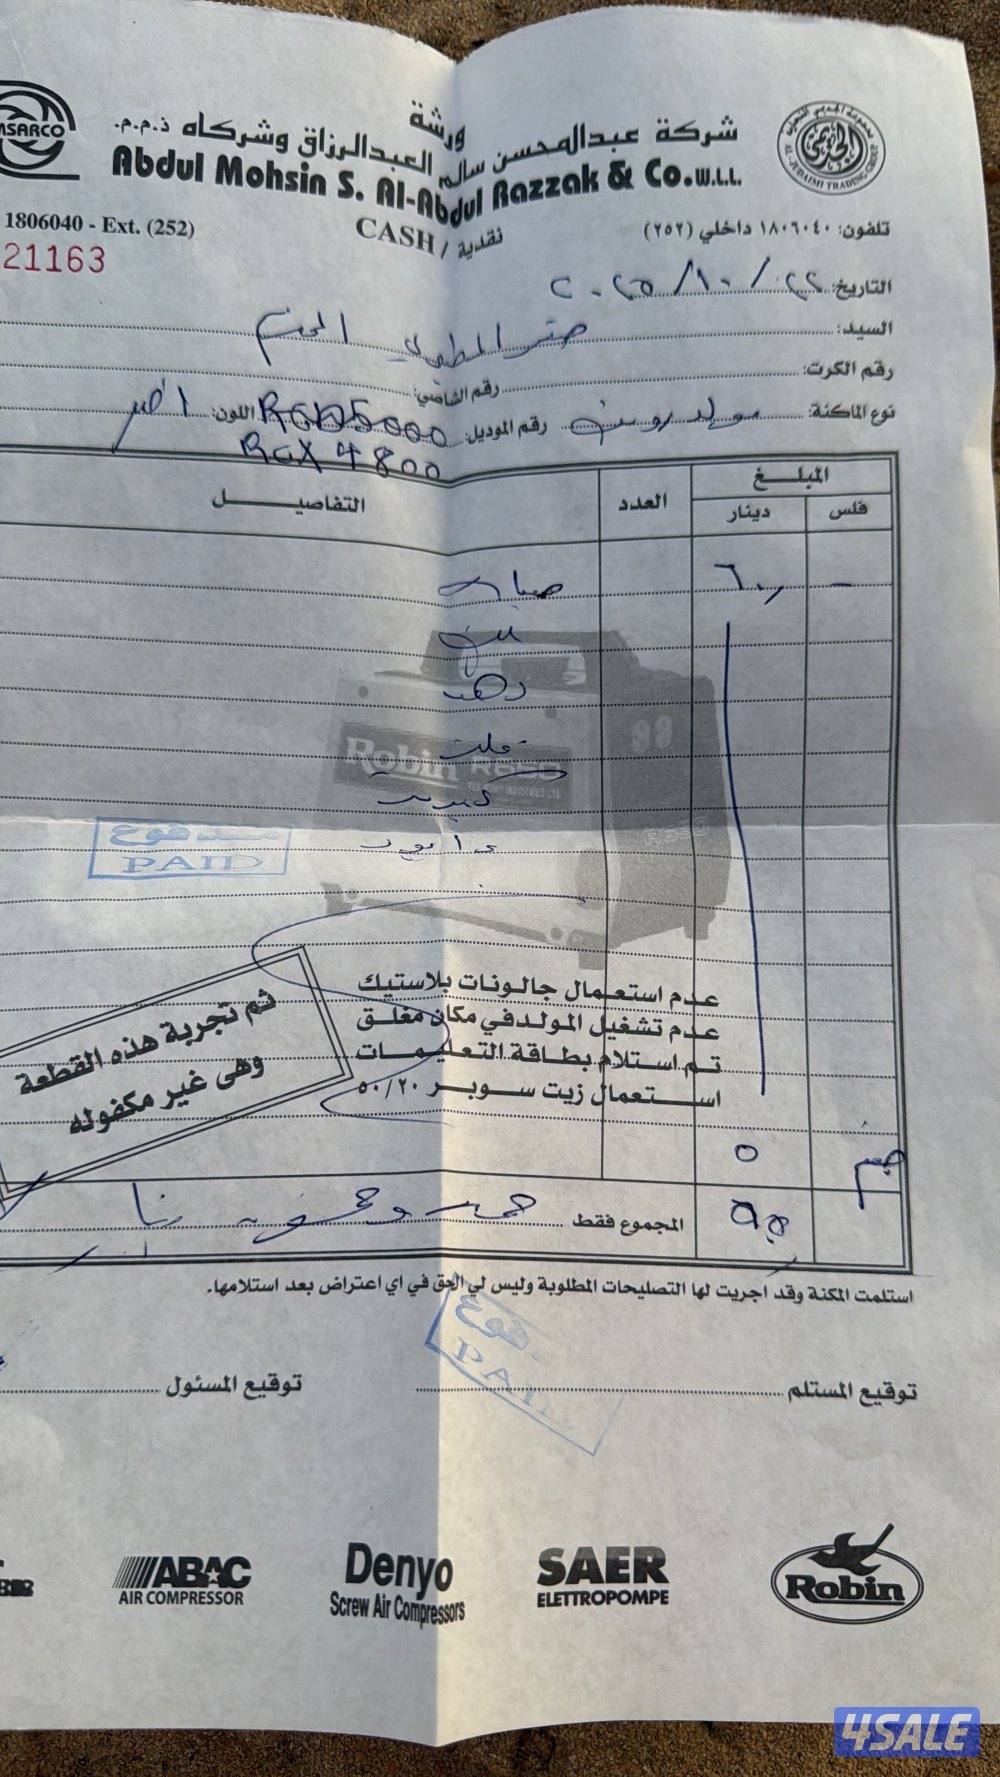 MSARCO
ورشة
شركة عبدالمحسن سالم العبدالرزاق وشركاه ذ.م.م.
Abdul Mohsin S. Al-Abdul Razzak & Co.W.L.L.
AL-JUDAIMI TRADING GROUP
تلفون: ١٨٠٦٠٤٠ داخلي (٢٥٢)
1806040 - Ext. (252)
نقدية / CASH
21163
التاريخ: ٢٠٢٥/١٠/٢٢
السيد: المطيري
رقم الكرت: رقم الشاصي:
نوع الماكنة: مولد روبن رقم الموديل: RGD5000 اللون: احمر
RGX 4800
المبلغ
فلس دينار العدد التفاصيل
- ٦٠
صيانة
دهن
فلتر
كبريتر
Robin R650
مدفوع
PAID
عدم استعمال جالونات بلاستيك
عدم تشغيل المولد في مكان مغلق
تم استلام بطاقة التعليمات
استعمال زيت سوبر ٥٠/٢٠
تم تجربة هذه القطعة
وهى غير مكفوله
خصم ٥
المجموع فقط خمسة وخمسون دينار ٥٥
استلمت المكنة وقد اجريت لها التصليحات المطلوبة وليس لي الحق في اي اعتراض بعد استلامها.
فوع
PAID
توقيع المستلم توقيع المسئول
ABAC
AIR COMPRESSOR
Denyo
Screw Air Compressors
SAER
ELETTROPOMPE
Robin
4SALE